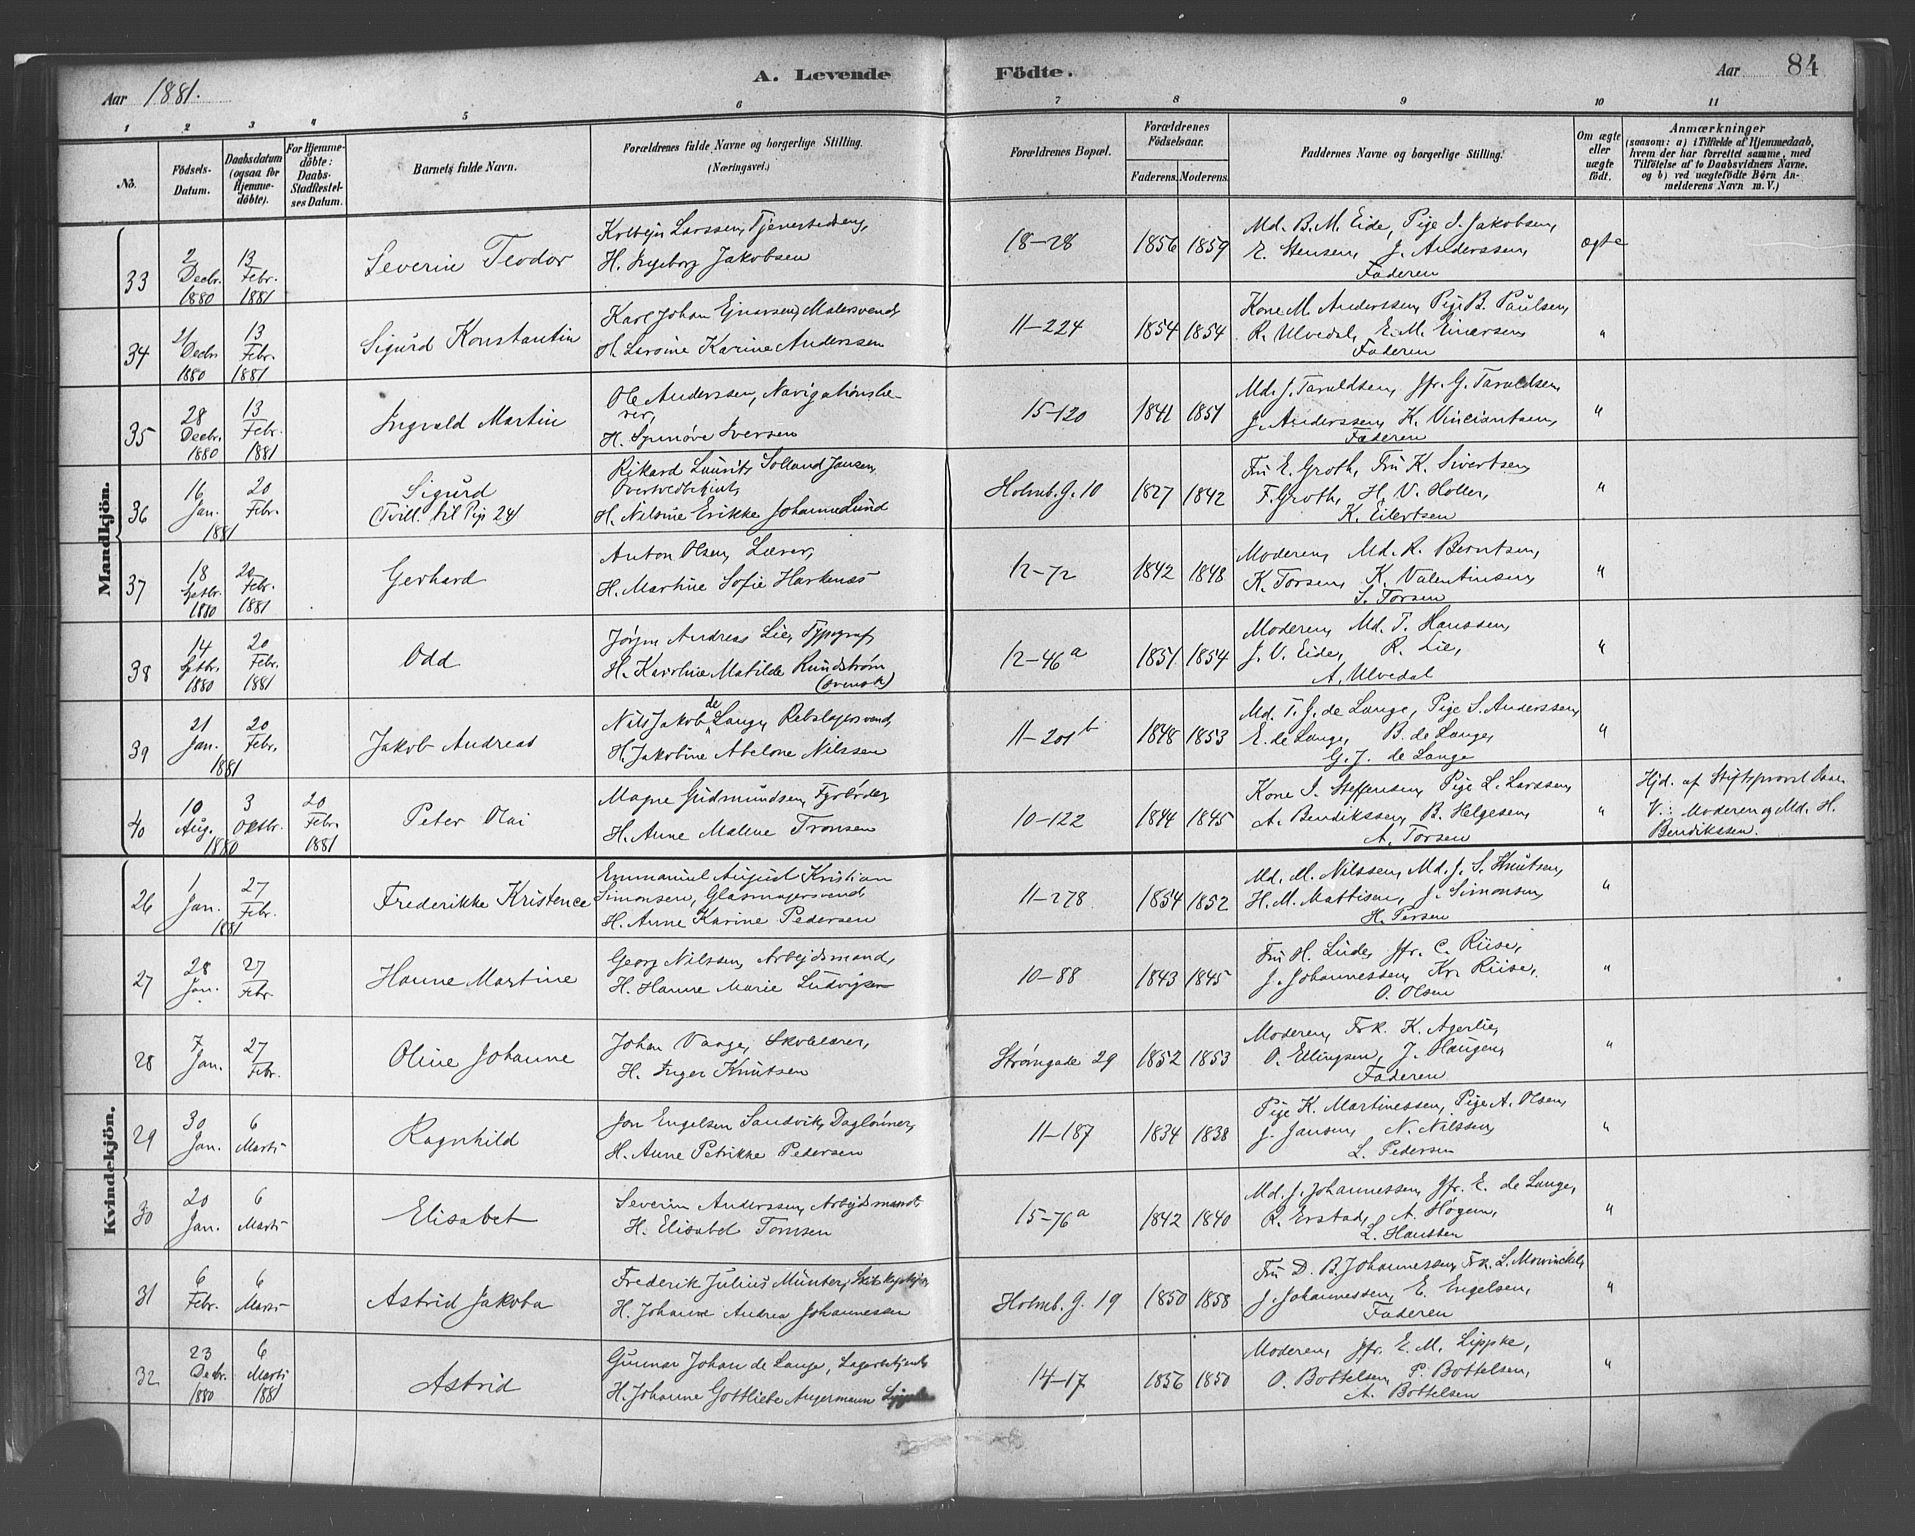 Aar 1881. A. Levende Födte. Aar 84
1 2 3 4 5 6 7 8 9 10 11
No. Födsels-Datum. Daabsdatum (ogsaa for Hjemmedöbte). For Hjemmedöbte: Daabs-Stadfestelses Datum. Barnets fulde Navn. Forældrenes fulde Navne og borgerlige Stilling. (Næringsvei.) Forældrenes Bopæl. Forældrenes Födselsaar. Faderens. Moderens. Faddernes Navne og borgerlige Stilling. Om ægte eller uægte födt. Anmærkninger (saasom: a) i Tilfælde af Hjemmedaab, hvem der har forrettet samme, med Tilföielse af to Daabsvidners Navne, og b) ved uægtefödte Börn Anmelderens Navn m. V.)
Mandkjön.
33 2 Decbr. 1880 13 Febr. 1881 Severin Teodor
Larssen, Tjenestedreng,
H. Ingeborg Jakobsen
18-28 1856 1859
Md. B. M. Eide, Pige I. Jakobsen,
E. Stensen, J. Anderssen,
Faderen
ægte
34 21 Decbr. 1880 13 Febr. 1881 Sigurd Konstantin
Karl Johan Ejnarsen, Malersvend,
H. Larsine Karine Anderssen
11-224 1854 1854
Kone M. Anderssen, Pige B. Paulsen,
R. Ulvedal, E. M. Einarsen,
Faderen
"
35 28 Decbr. 1880 13 Febr. 1881 Ingvald Martin
Ole Anderssen, Navigationslærer,
H. Synnøve Iversen
15-120 1841 1851
Md. J. Taraldsen, Jfr. G. Taraldsen,
J. Anderssen, K. Vincientsen,
Faderen
"
36 16 Jan. 1881 20 Febr. Sigurd
(Tvill. til Pige 24)
Rikard Laurits Solland Jansen,
H. Nilsine Erikke Johanne Lund
Holmb. G. 10 1827 1842
Fru E. Groth, Fru K. Sivertsen,
F. Groth, H. V. Holler,
K. Eilertsen
"
37 18 Sptbr. 1880 20 Febr. 1881 Gerhard
Anton Olsen, Lærer,
H. Martine Sofie Harkness
12-72 1842 1848
Moderen, Md. R. Berntsen,
K. Torsen, K. Valentinsen,
S. Torsen
"
38 14 Sptbr. 1880 20 Febr. 1881 Odd
Jørgen Andreas Lie, Typograf,
H. Karoline Matilde Rundstrøm
(svensk)
12-46a 1851 1854
Moderen, Md. T. Hanssen,
J. V. Eide, R. Lie,
A. Ulvedal
"
39 21 Jan. 1881 20 Febr. Jakob Andreas
Nils Jakob de Lange, Rebslagersvend,
H. Jakobine Abelone Nilssen
11-201b 1848 1853
Md. T. G. de Lange, Pige S. Anderssen,
E. de Lange, B. de Lange,
G. J. de Lange
"
40 10 Aug. 1880 3 Oktbr. 20 Febr. 1881 Peter Olai
Magne Gudmundsen, Fyrbøder,
H. Anne Malene Tronsen
10-122 1844 1845
Kone I. Steffensen, Pige L. Larssen,
A. Bendikssen, B. Helgesen,
A. Torsen
"
Hjd. af Stiftsprovst Daae
V.: Moderen og Md. H.
Bendikssen.
Kvindekjön.
26 1 Jan. 1881 27 Febr. Frederikke Kristence
Emmanuel August Kristian
Simonsen, Glasmagersvend,
H. Anne Karine Pedersen
11-278 1854 1852
Md. M. Nilssen, Md. J. S. Knutsen,
H. M. Mattisen, J. Simonsen,
H. Persen
"
27 28 Jan. 27 Febr. Hanne Martine
Georg Nilssen, Arbejdsmand,
H. Hanne Marie Ludvigsen
10-88 1843 1845
Fru H. Lude, Jfr. C. Riise,
J. Johannessen, Kr. Riise,
O. Olsen
"
28 7 Jan. 27 Febr. Oline Johanne
Johan Vange, Skolelærer,
H. Inger Knutsen
Strømgade 29 1852 1853
Moderen, Frk. K. Agerlie,
O. Ellingsen, J. Haugen,
Faderen
"
29 30 Jan. 6 Marts Ragnhild
Jon Engelsen Sandvik, Daglønner,
H. Anne Petrikke Pedersen
11-187 1834 1838
Pige K. Martinessen, Pige A. Olsen,
J. Jansen, N. Nilssen,
L. Pedersen
"
30 20 Jan. 6 Marts Elisabet
Severin Anderssen, Arbejdsmand
H. Elisabet Tomsen
15-76a 1842 1840
Md. J. Johannessen, Jfr. E. de Lange,
R. Erstad, A. Høgem,
L. Hanssen
"
31 6 Febr. 6 Marts Astrid Jakoba
Frederik Julius Münter,
H. Johanne Andrea Johannessen
Holmb. G. 19 1850 1858
Fru D. B. Johannessen, Frk. L. Mowinckel,
J. Johannessen, E. Engelsen,
Faderen
"
32 23 Decbr. 1880 6 Marts 1881 Astrid
Gunnar Johan de Lange,
H. Johanne Gottliebe Angermann
14-17 1856 1850
Moderen, Jfr. E. M. Lippke,
O. Bottelsen, P. Bottelsen,
A. Bottelsen
"